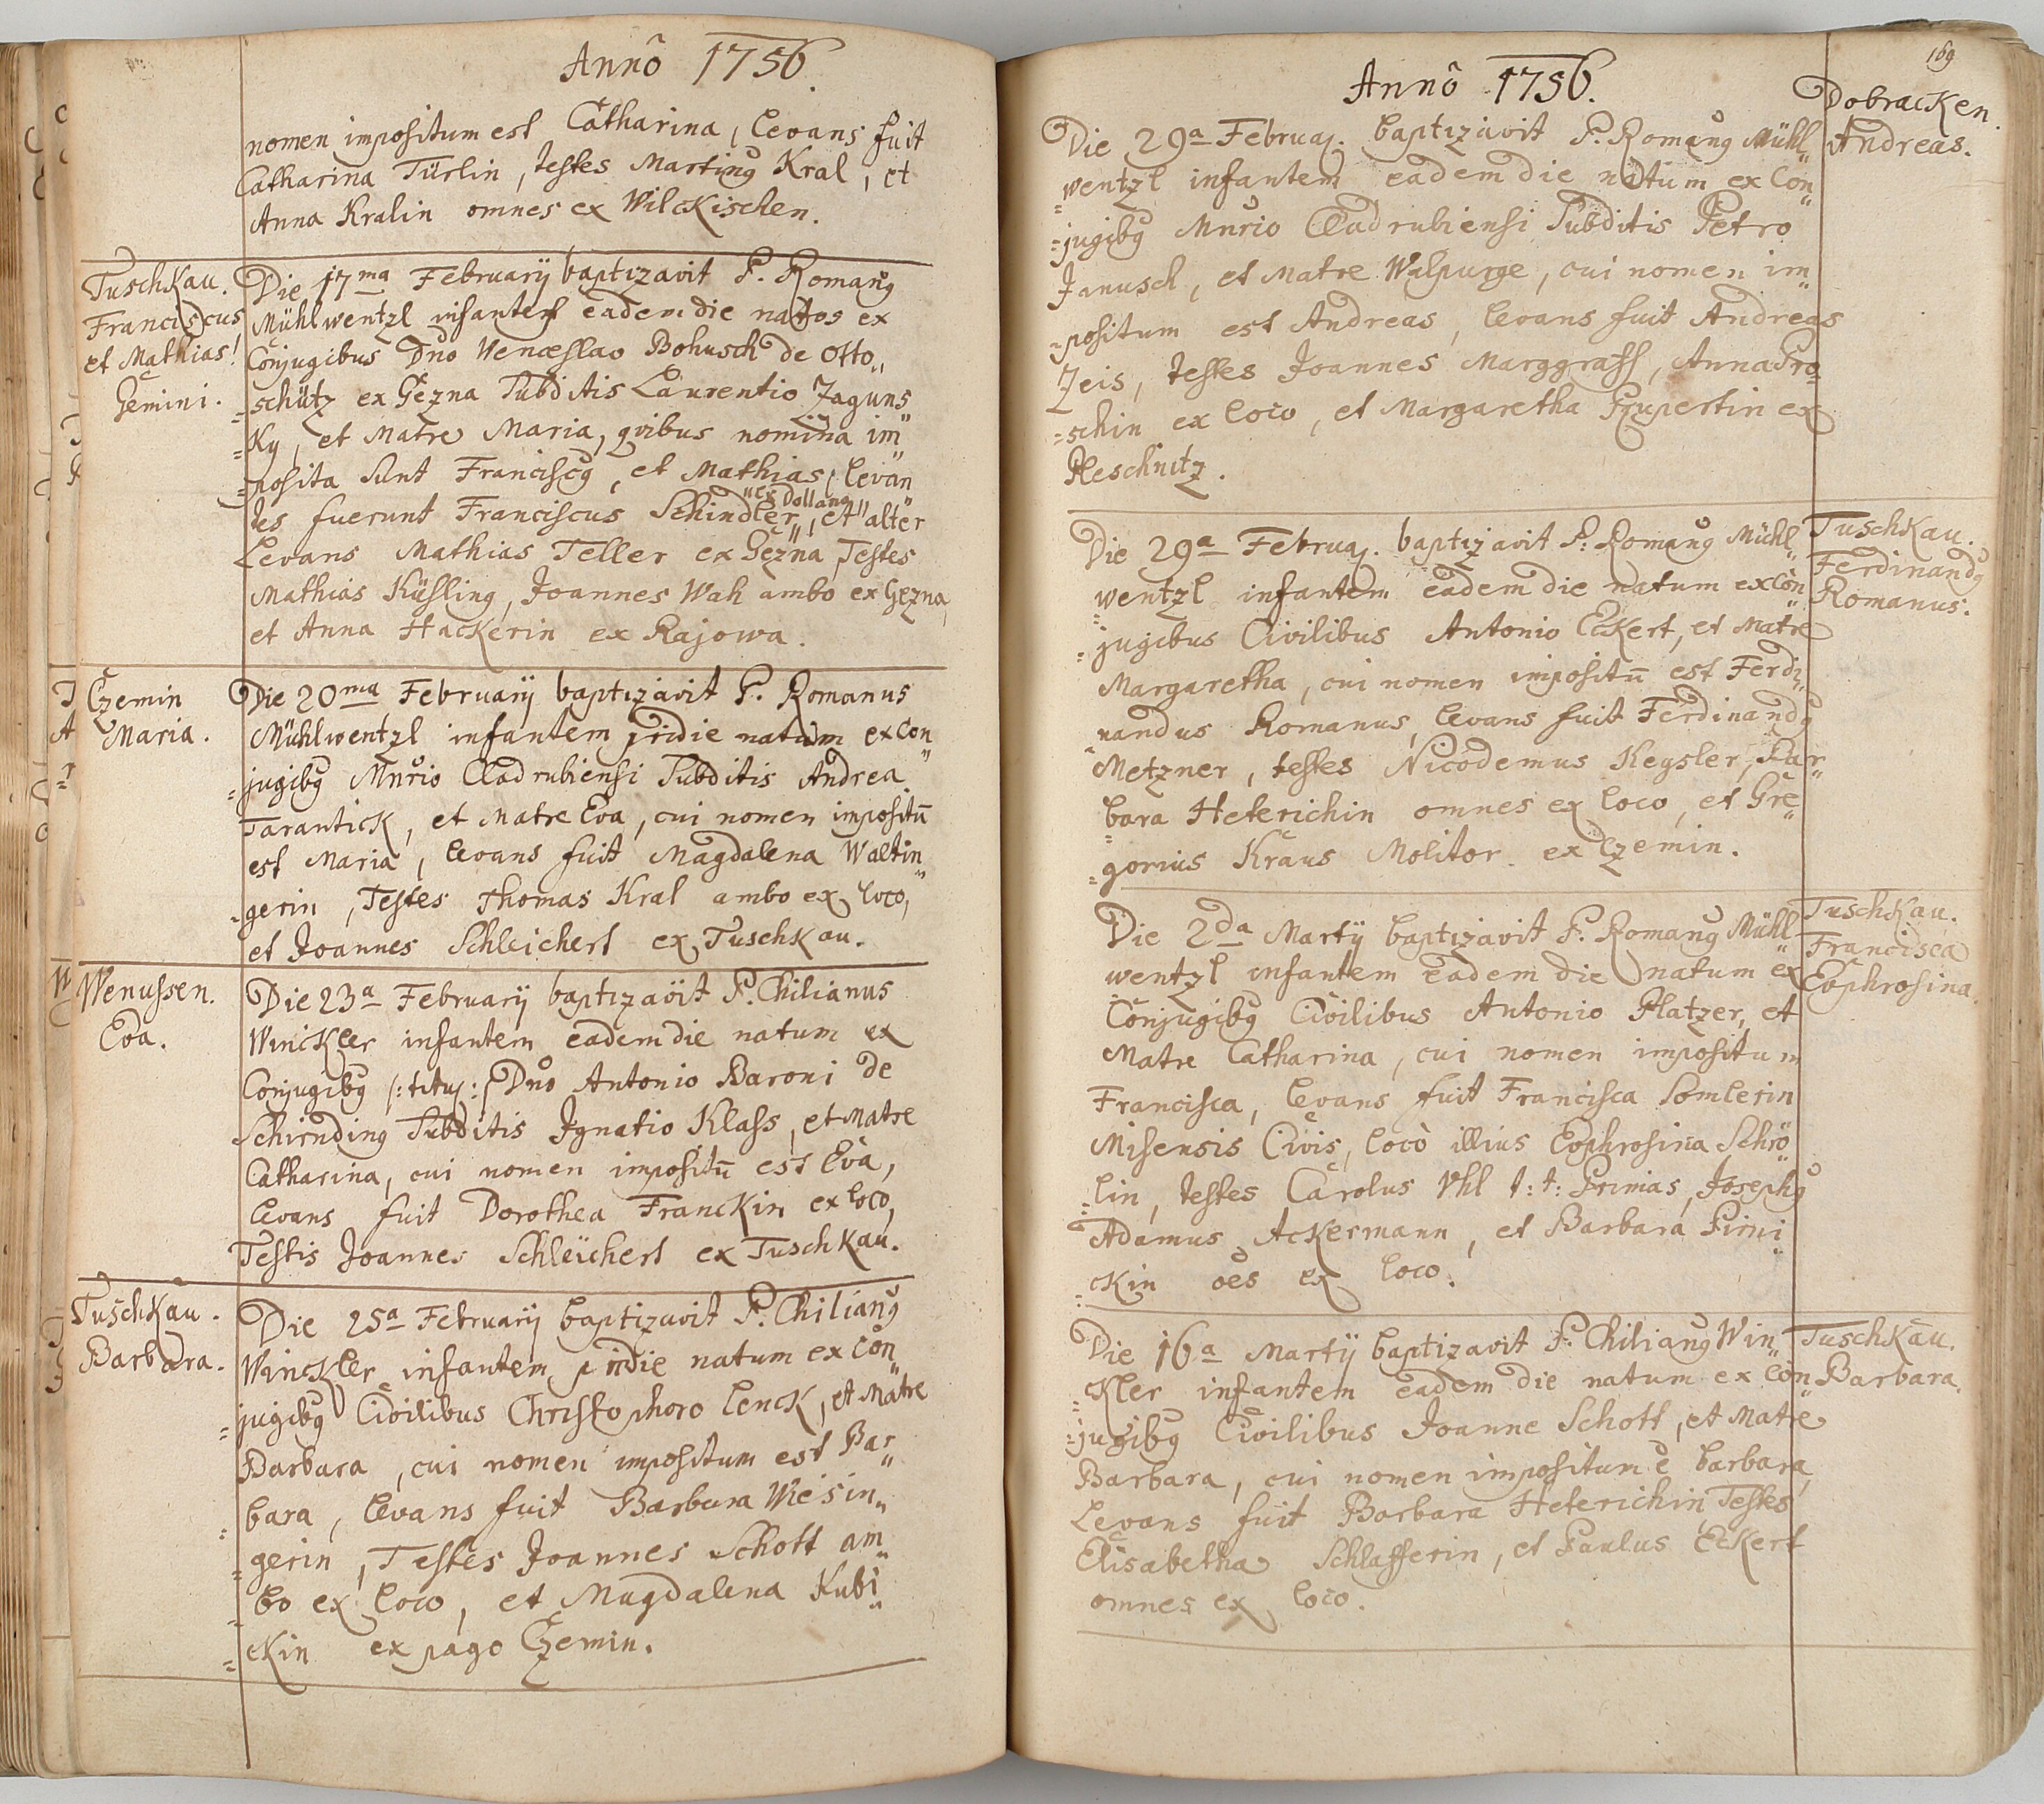 Annô 1756.
nomen impositum est Catharina, levans fuit
Catharina Türlin, testes Martinus Kral, et
Anna Kralin omnes ex Wilckischen.
Tuschkau.
Franciscus
et Mathias!
Gemini.
Die 17ma Februarÿ baptizavit P. Romanus
Mühlwentzl infantes eadem die natos ex
Conjugibus Dno Wenceslao Bohusch de Otto„
=schütz ex Gezna Subditis Laurentio Zaguns„
=ky, et Matre Maria, qvibus nomina im„
=posita sunt Franciscus, et Mathias, levan„
tes fuerunt Franciscus Schindler „ex Dollana„, et alter
Levans Mathias Teller ex Gezna, Testes
Mathias Küsling, Joannes Wah ambo ex Gezna,
et Anna Hackerin ex Rajowa.
Czemin
Maria.
Die 20ma Februarÿ baptizavit P. Romanus
Mühlwentzl infantem pridie natum ex Con„
=jugibus Mnrio Cladrubiensi Subditis Andrea
Tarantick, et Matre Eva, cui nomen impositū
est Maria, levans fuit Magdalena Waltin„
=gerin, Testes Thomas Kral ambo ex loco,
et Joannes Schleichert ex Tuschkau.
Wenussen.
Eva.
Die 23a Februarÿ baptizavit P. Chilianus
Winckler infantem eadem die natum ex
Conjugibus /:titul:/ Dno Antonio Baroni de
Schirnding Subditis Ignatio Klass, et Matre
Catharina, cui nomen impositū est Eva,
levans fuit Dorothea Franckin ex loco,
Testis Joannes Schleichert ex Tuschkau.
Tuschkau.
Barbara.
Die 25a Februarÿ baptizavit P. Chilianus
Winckler infantem pridie natum ex Con„
=jugibus Civilibus Christophoro Lenck, et Matre
Barbara, cui nomen impositum est Bar„
=bara, levans fuit Barbara Wiesin„
=gerin, Testes Joannes Schott am„
=bo ex loco, et Magdalena Kubi„
=ckin ex pago Czemin.
169
Annô 1756.
Dobracken.
Andreas.
Die 29a Februar. baptizavit P. Romanus Mühl„
=wentzl infantem eadem die natum ex Con„
=jugibus Mnrio Cladrubiensi Subditis Petro
Janusch, et Matre Walpurge, cui nomen im„
=positum est Andreas, levans fuit Andreas
Zeis, testes Joannes Marggraff, Anna Pro=
=schin ex loco, et Margaretha Rupertin ex
Pleschnitz.
Tuschkau.
Ferdinandus
Romanus.
Die 29a Februar. baptizavit P: Romanus Mühl„
=wentzl infantem eadem die natum ex Con„
=jugibus Civilibus Antonio Eckert, et Matre
Margaretha, cui nomen impositū est Ferdi„
=nandus Romanus, levans fuit Ferdinandus
Metzner, testes Nicodemus Keysler, Bar„
=bara Heterichin omnes ex loco, et Gre„
=gorius Kraus Molitor ex Czemin.
Tuschkau.
Francisca
Eophrosina.
Die 2da Martÿ baptizavit P. Romanus Mühl„
wentzl infantem eadem die natum ex
Conjugibus Civilibus Antonio Platzer, et
Matre Catharina, cui nomen impositum
Francisca, levans fuit Francisca Somlerin
Misensis Civis, locò illius Eophrosina Schrö„
=lin, testes Carolus Uhl t:t: Primas, Josephus
Adamus Ackermann, et Barbara Pirni„
=ckin oēs ex loco.
Tuschkau.
Barbara.
Die 16a Martÿ baptizavit P. Chilianus Win„
=ckler infantem eadem die natum ex Con„
=jugibus Civilibus Joanne Schott, et Matre
Barbara, cui nomen impositum ē barbara,
Levans fuit Barbara Heterichin, Testes
Elisabetha Schlafferin, et Paulus Eckert
omnes ex loco.